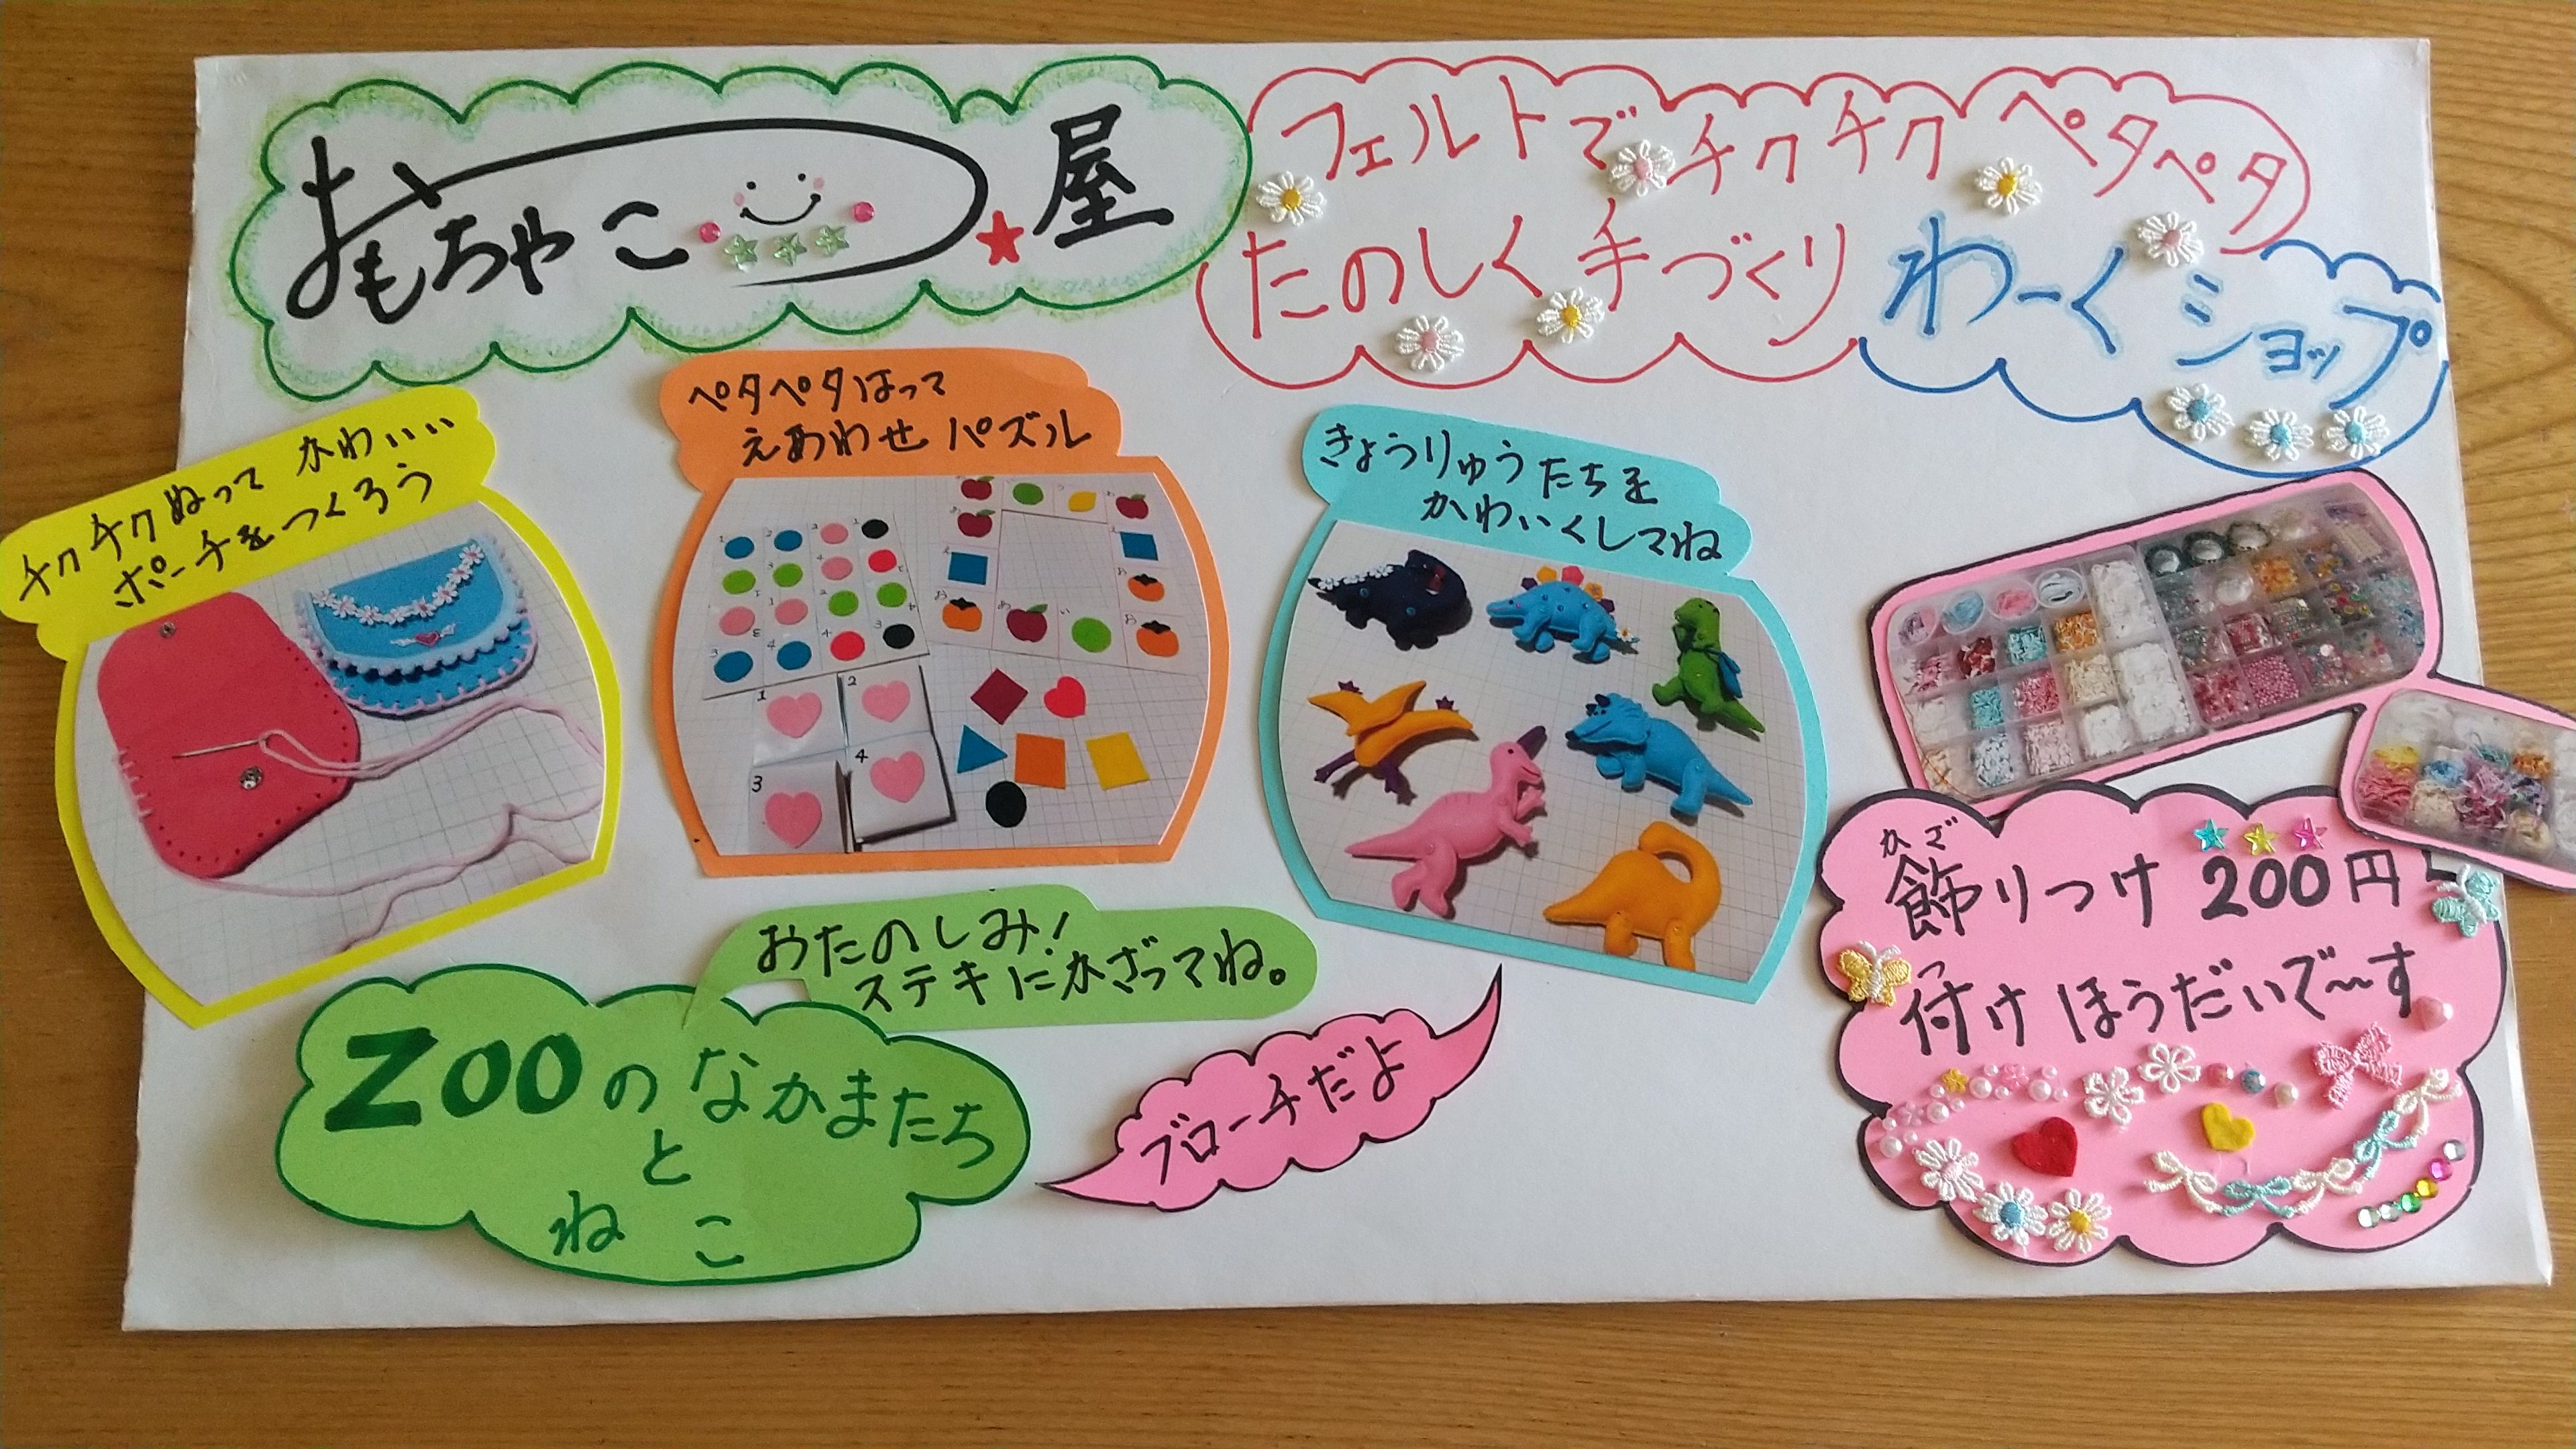 おもちゃこ屋
フェルトでチクチクペタペタ
たのしく手づくり
わーくショップ
チクチクぬってかわいい
ポーチをつくろう
ペタペタはって
えあわせパズル
きょうりゅうたちを
かわいくしてね
おたのしみ!
ステキにかざってね。
ZOOのなかまたち
と
ねこ
ブローチだよ
かざ
飾りつけ 200円
つ
付けほうだいで〜す